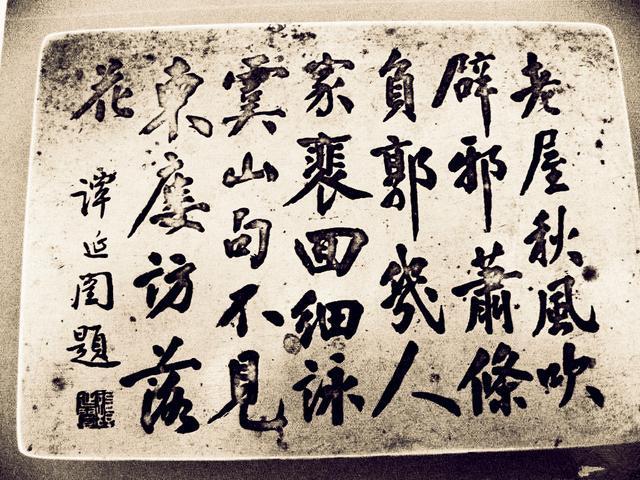 老屋秋風吹
辟邪蕭條
負郭幾人
家裴回細詠
虞山句不見
東廔訪落
花
譚延闓題